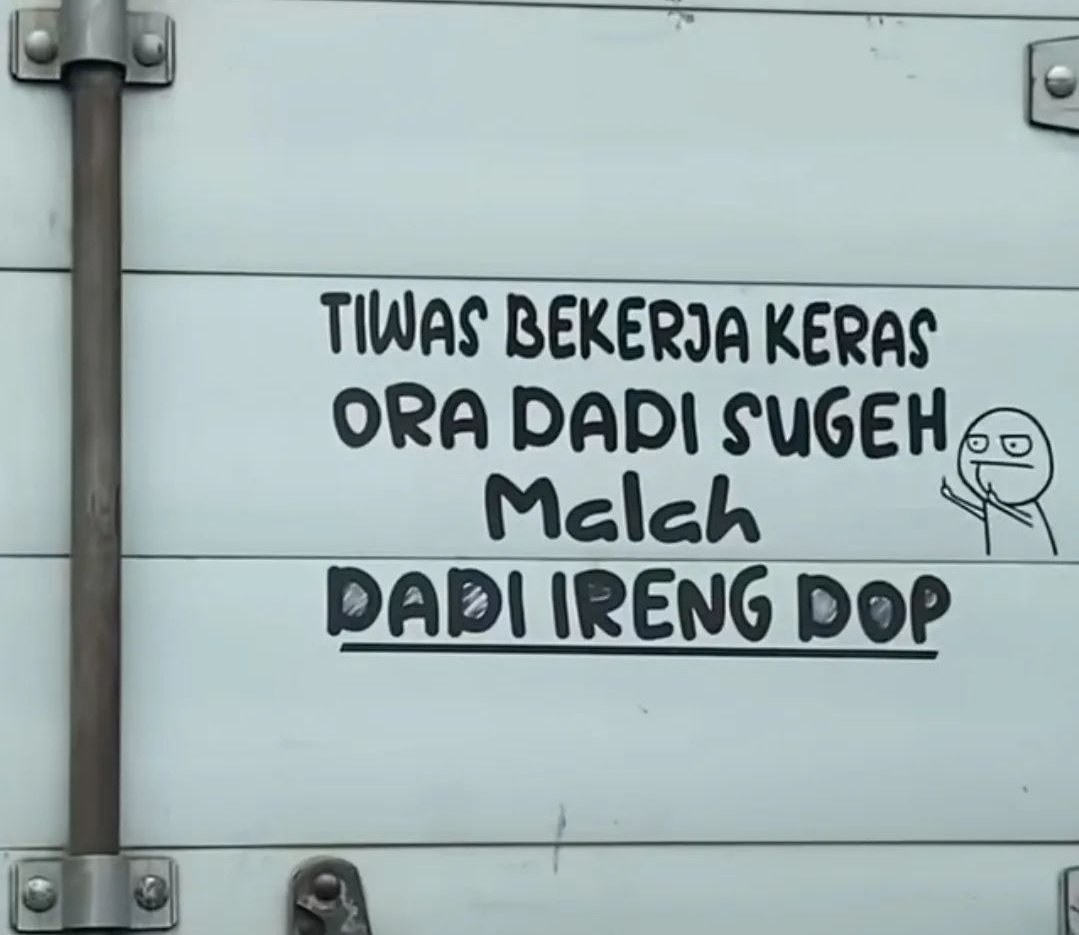 TIWAS BEKERJA KERAS
ORA DADI SUGEH
Malah
DADI IRENG DOP